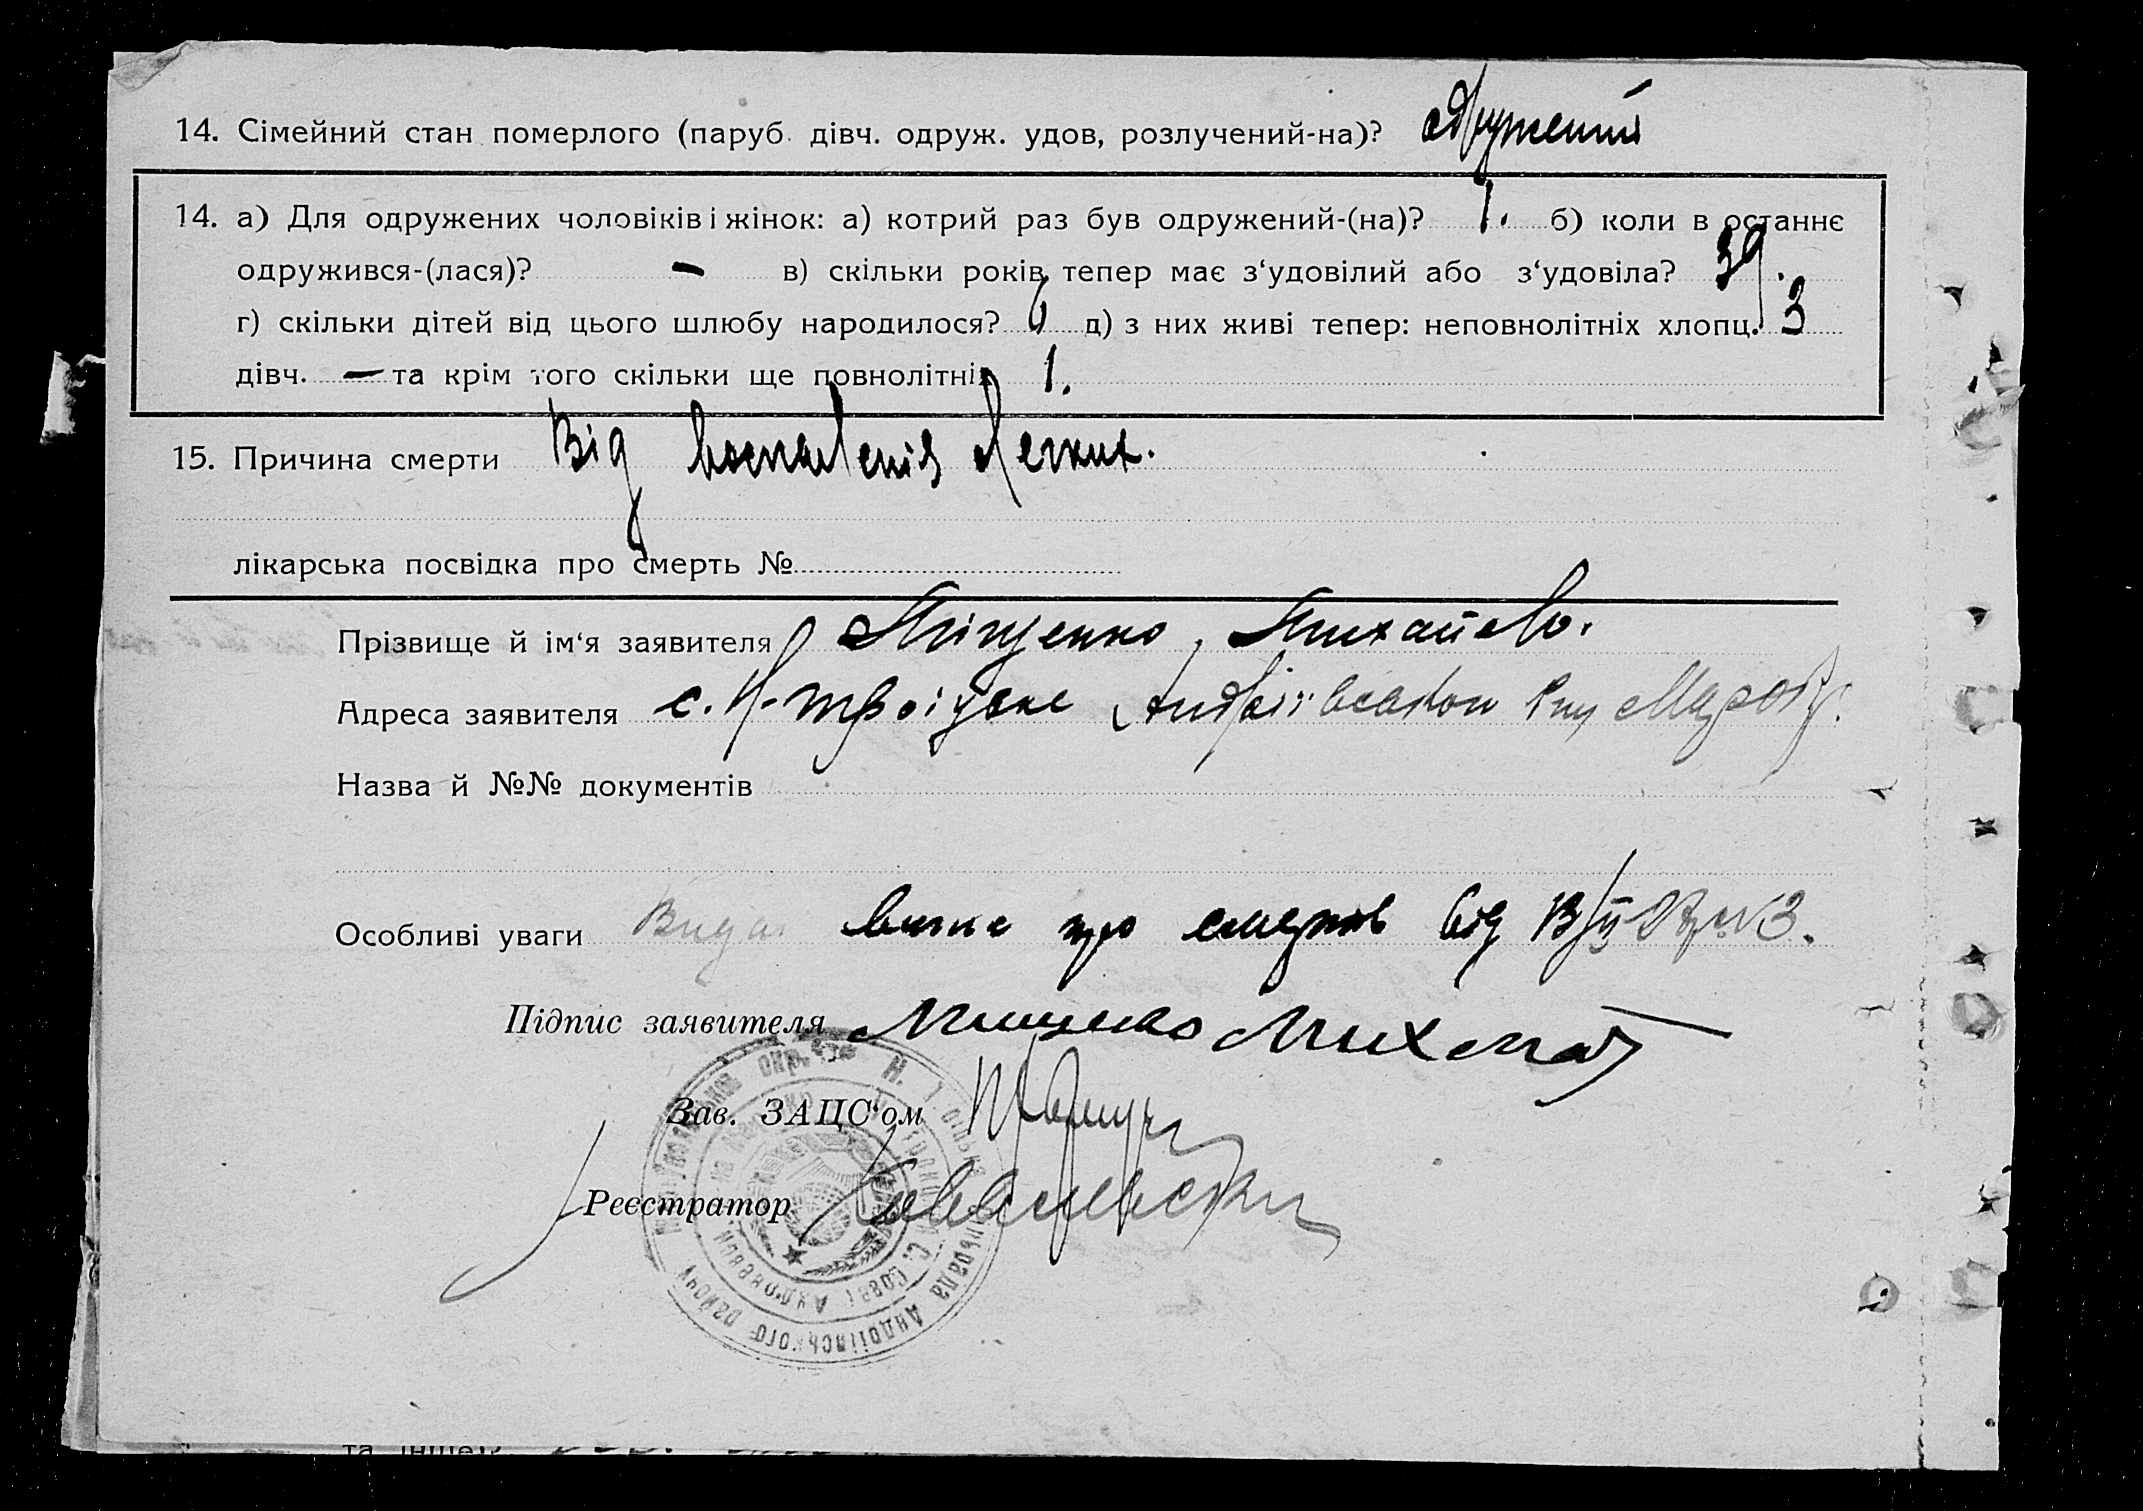 14. Сімейний стан померлого (паруб. дівч. одруж. удов, розлучений-на)? одружений
14. а) Для одружених чоловіків і жінок: а) котрий раз був одружений-(на)? 1. б) коли в останнє
одружився-(лася)? — в) скільки років тепер має з‘удовілий або з‘удовіла? 39.
г) скільки дітей від цього шлюбу народилося? 6 д) з них живі тепер: неповнолітніх хлопц. 3
дівч. — та крім того скільки ще повнолітніх 1.
15. Причина смерти Від воспаленія легких.
лікарська посвідка про смерть №
Прізвище й ім‘я заявителя Міщенко, Михайло.
Адреса заявителя с. Н-Троіцьке Андріївського
Назва й №№ документів
Особливі уваги Видан випис про смерть від 13/II № 3.
Підпис заявителя Мищенко
Зав. ЗАЦС‘ом
Реєстратор Ковалевски
та інше?